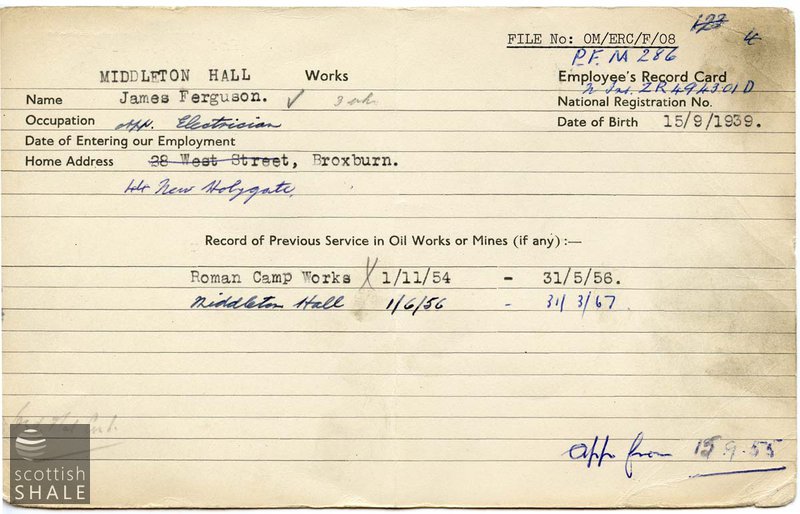 FILE No: OM/ERC/F/08
P.F. M 286
MIDDLETON HALL Works Employee's Record Card
Name James Ferguson. ✓ N Ins. ZR494301D
National Registration No.
Occupation App. Electrician Date of Birth 15/9/1939.
Date of Entering our Employment
Home Address 38 West Street, Broxburn.
44 New Holygate.
Record of Previous Service in Oil Works or Mines (if any) :—
Roman Camp Works 1/11/54 - 31/5/56.
Middleton Hall 1/6/56 - 31/3/67
App from 15.9.55
scottish
SHALE